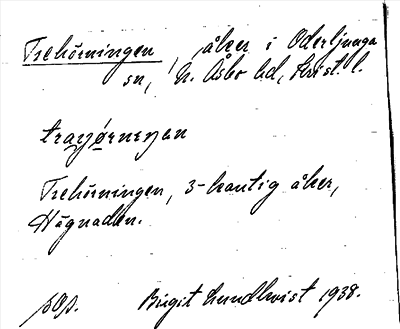 Trehörningen, åker i Oderljunga
sn, N. Åsbo hd, Krist. l.
Trehörningen, 3-kantig åker,
Hägnaden.
pop. Birgit Lundkvist 1938.